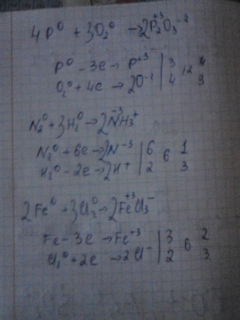 4P⁰ + 3O₂⁰ → 2P₂⁺³O₃⁻²
P⁰ - 3e → P⁺³ | 3 | 12 | 4
O₂⁰ + 4e → 2O⁻² | 4 | 3
N₂⁰ + 3H₂⁰ → 2N⁻³H₃⁺
N₂⁰ + 6e → 2N⁻³ | 6 | 6 | 1
H₂⁰ - 2e → 2H⁺ | 2 | 3
2Fe⁰ + 3Cl₂⁰ → 2Fe⁺³Cl₃⁻
Fe - 3e → Fe⁺³ | 3 | 6 | 2
Cl₂⁰ + 2e → 2Cl⁻ | 2 | 3